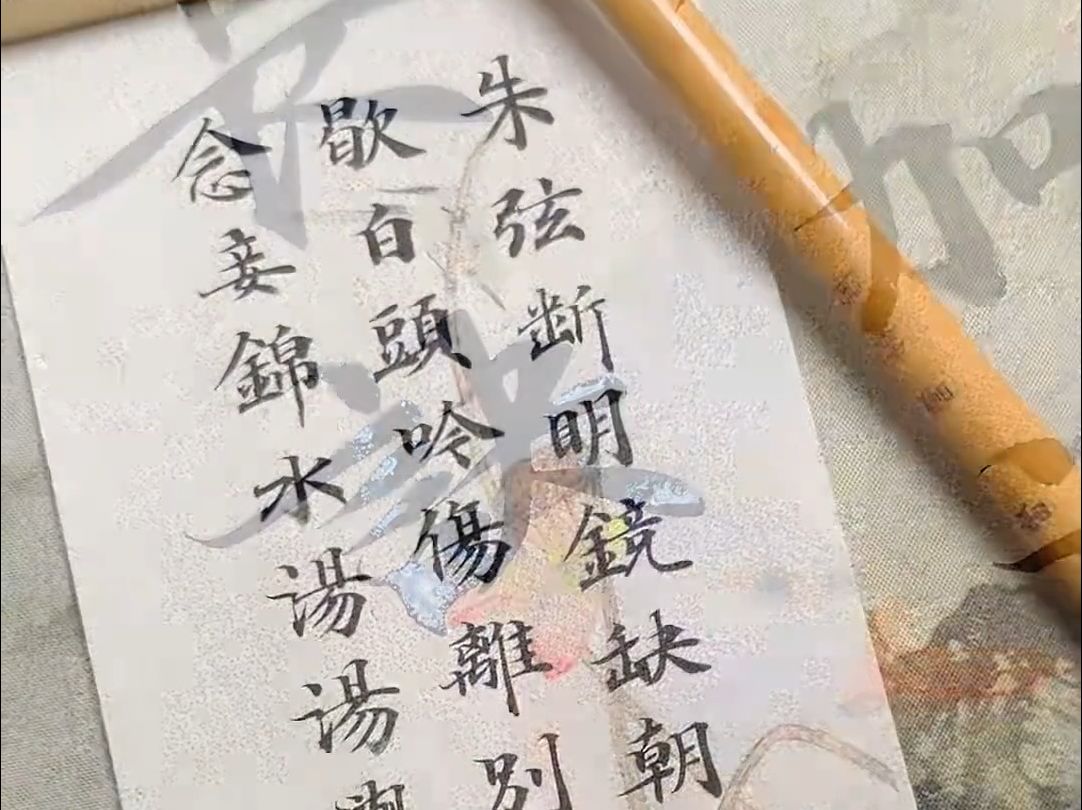 朱弦断明鏡缺朝
歇白頭吟傷離別
念妾錦水湯湯